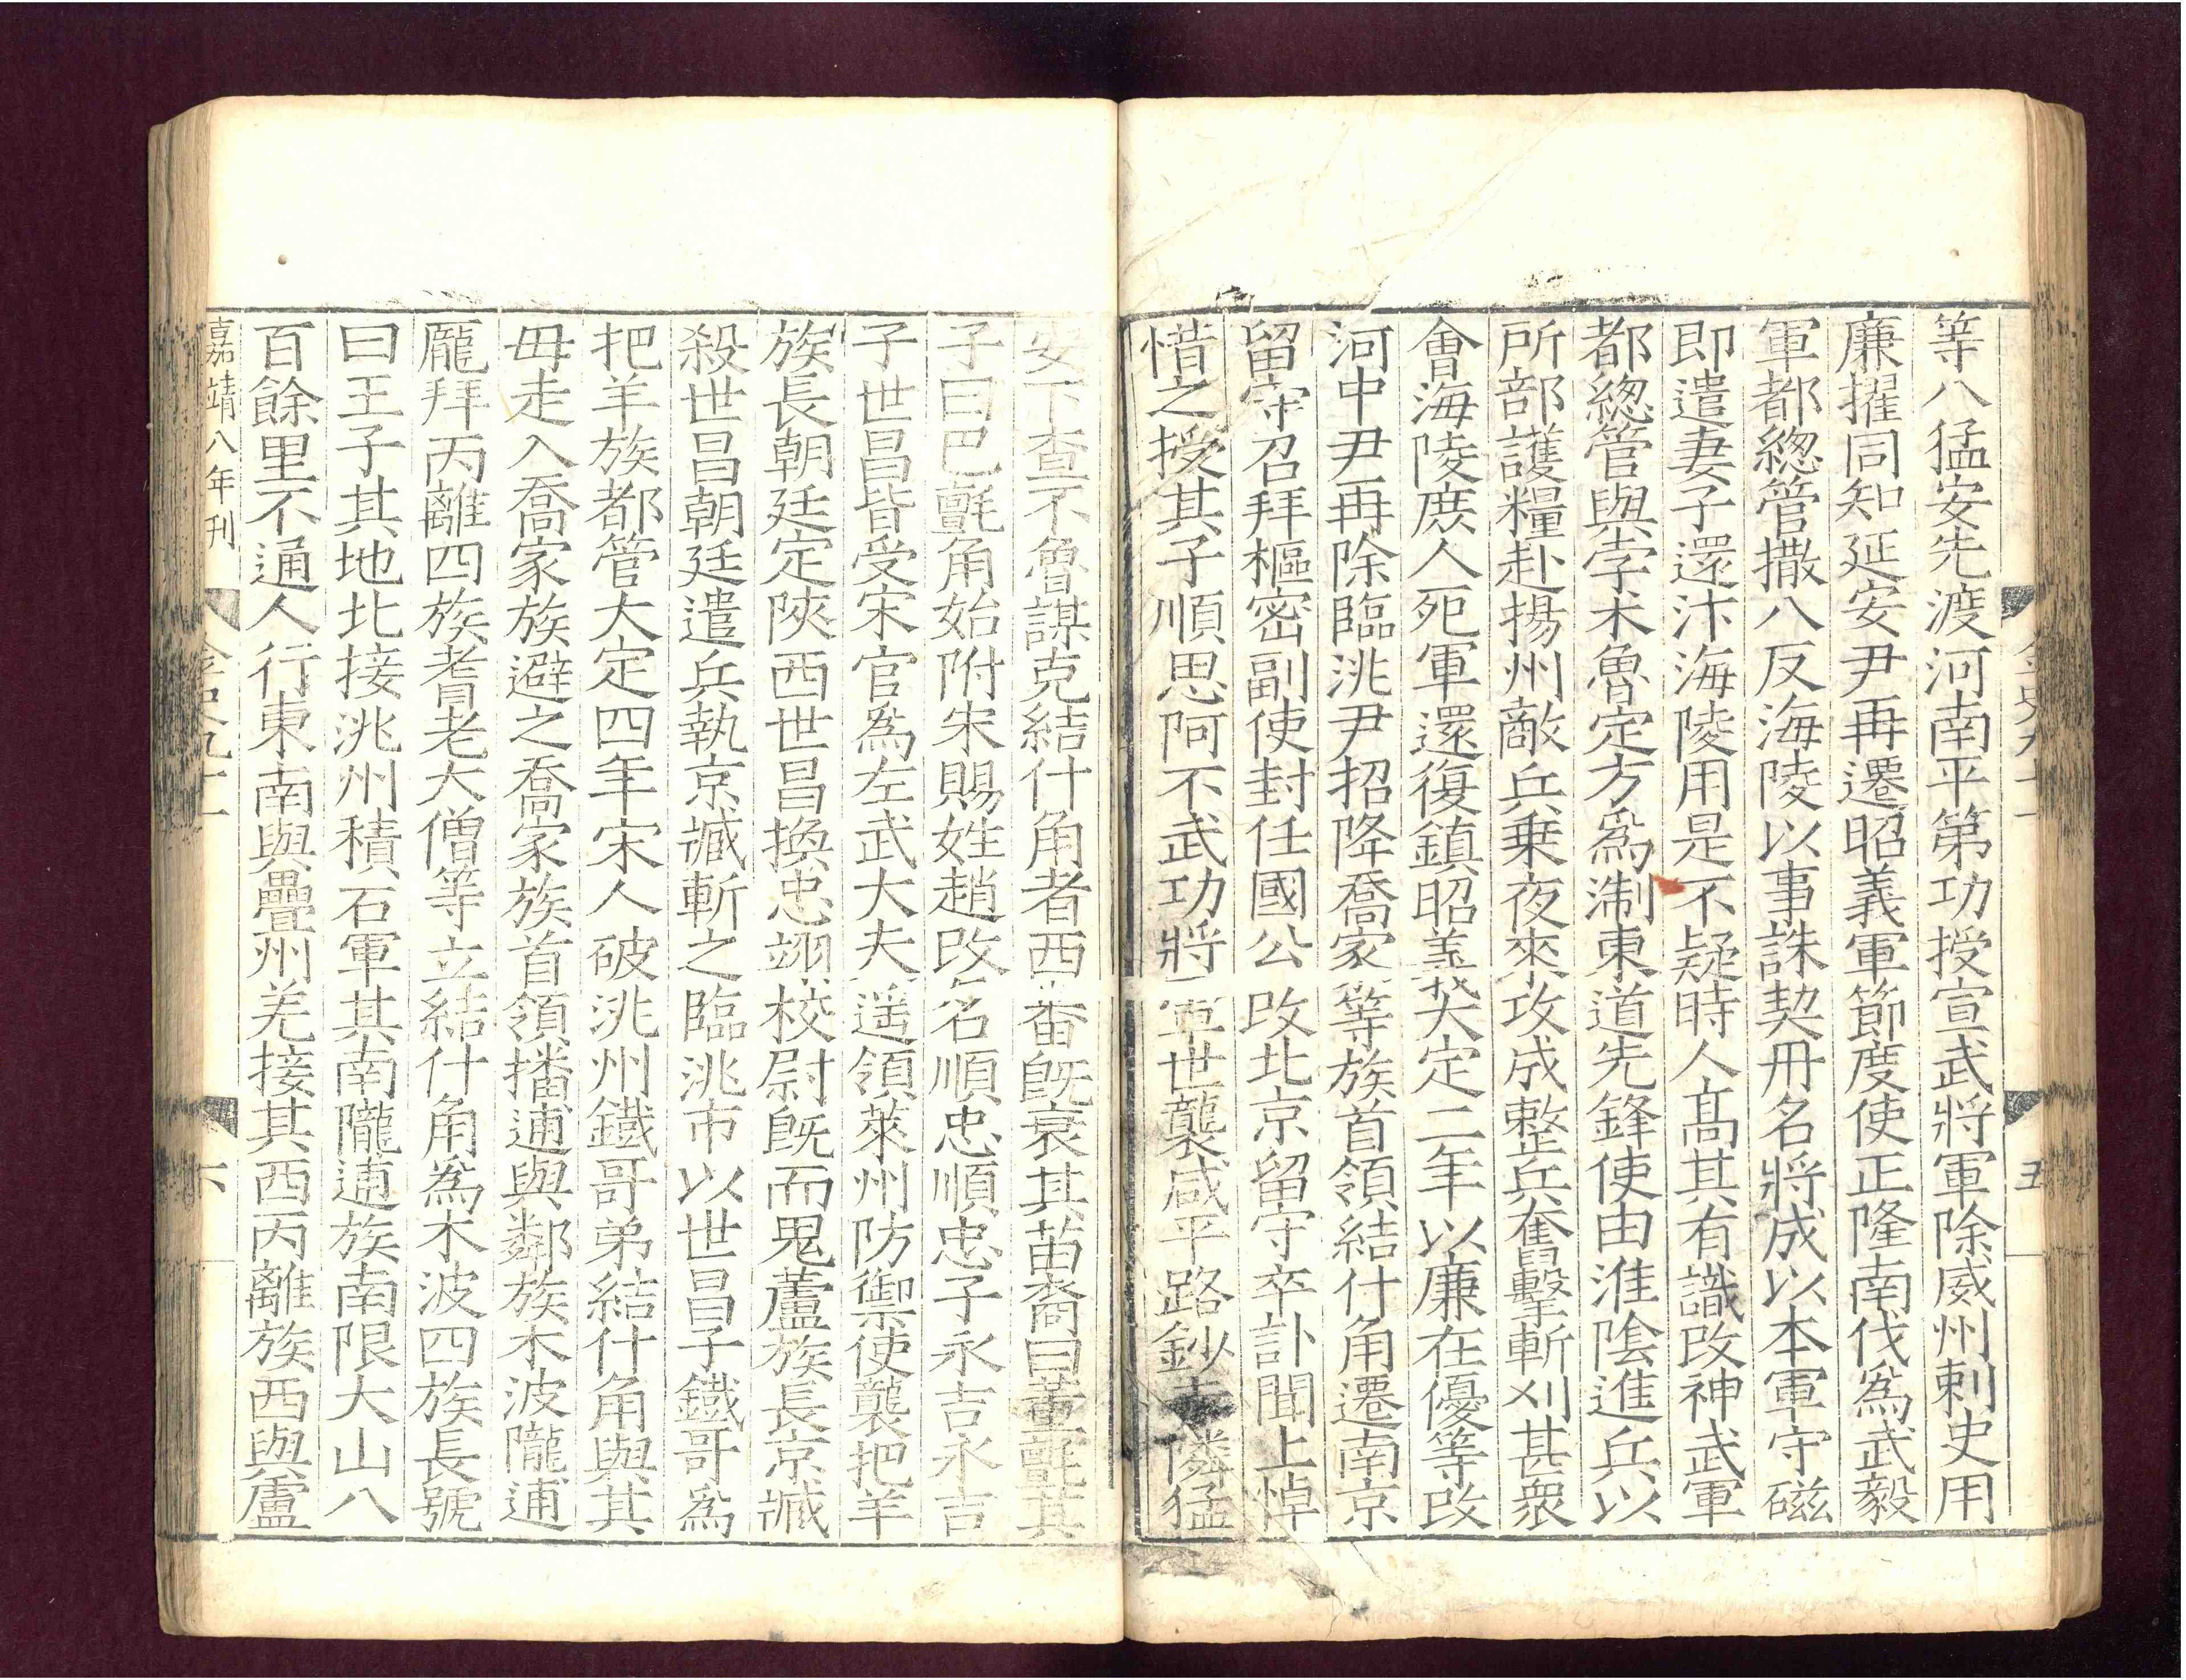 等八猛安先渡河南平第功授宣武將軍除威州刺史用
廉擢同知延安尹再遷昭義軍節度使正隆南伐爲武毅
軍都緫管撒八反海陵以事誅契丹名將成以本軍守磁
即遣妻子還汴海陵用是不疑時人髙其有識改神武軍
都緫管與孛术魯定方爲淛東道先鋒使由淮陰進兵以
所部護糧赴揚州敵兵乗夜來攻成整兵奮擊斬刈甚衆
會海陵庻人死軍還復鎮昭義大定二年以廉在優等改
河中尹再除臨洮尹招降喬家等族首領結什角遷南京
留守召拜樞密副使封任國公改北京留守卒訃聞上悼
惜之授其子順思阿不武功將軍世襲咸平路鈔赤隣猛
安下查不魯謀克結什角者西番旣衰其苗裔曰董氊其
子曰巴氊角始附宋賜姓趙改名順忠順忠子永吉永吉
子世昌皆受宋官爲左武大夫遥領萊州防禦使襲把羊
族長朝廷定陝西世昌換忠翊校尉旣而鬼蘆族長京臧
殺世昌朝廷遣兵執京臧斬之臨洮市以世昌子鐵哥爲
把羊族都管大定四年宋人破洮州鐵哥弟結什角與其
母走入喬家族避之喬家族首領播逋與鄰族木波隴逋
龐拜丙離四族耆老大僧等立結什角爲木波四族長號
曰王子其地北接洮州積石軍其南隴逋族南限大山八
百餘里不通人行東南與疊州羌接其西丙離族西與盧
嘉靖八年刊
六